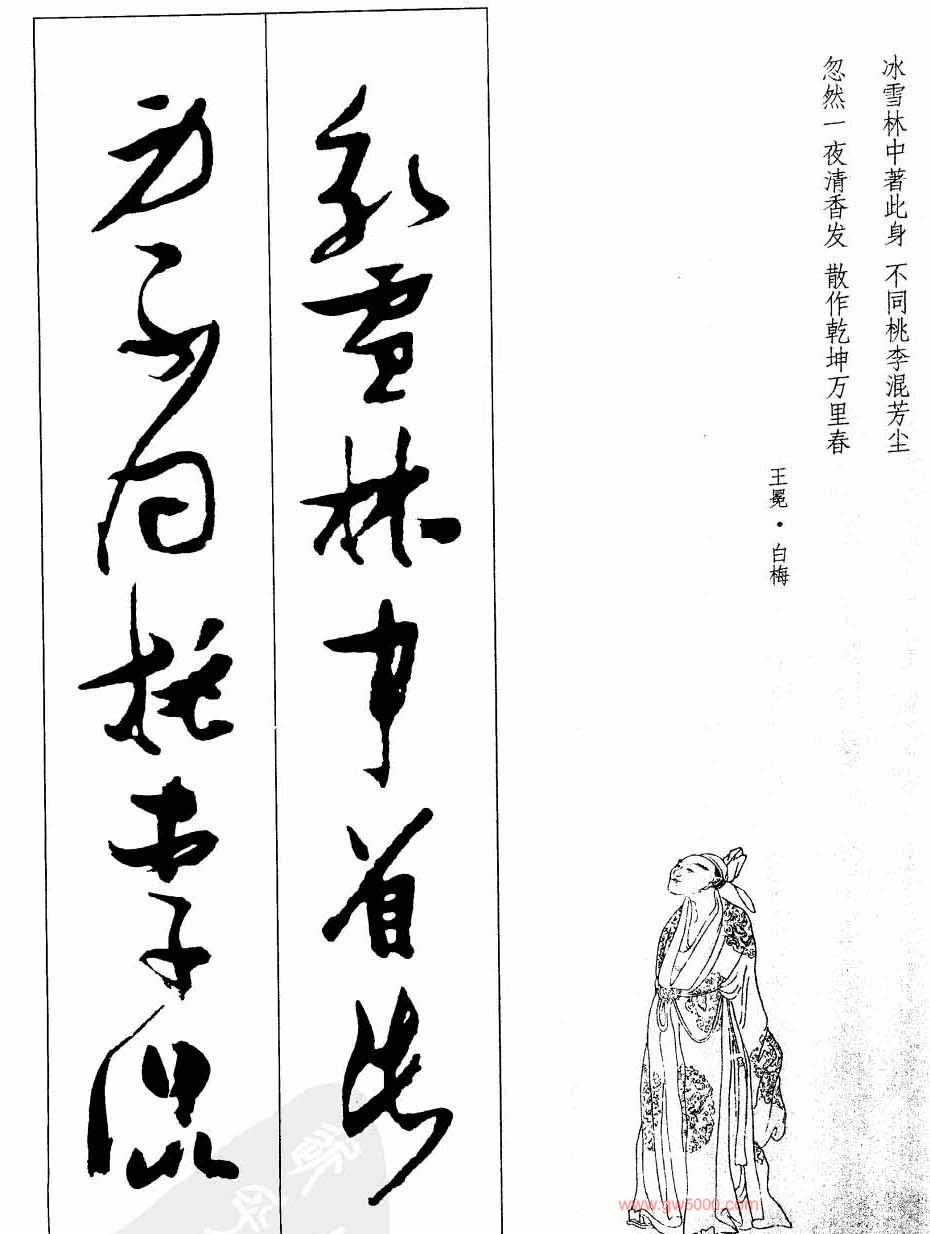 冰雪林中著此身 不同桃李混芳尘
忽然一夜清香发 散作乾坤万里春
王冕·白梅
冰雪林中著此
身不同桃李混
www.gw5000.com